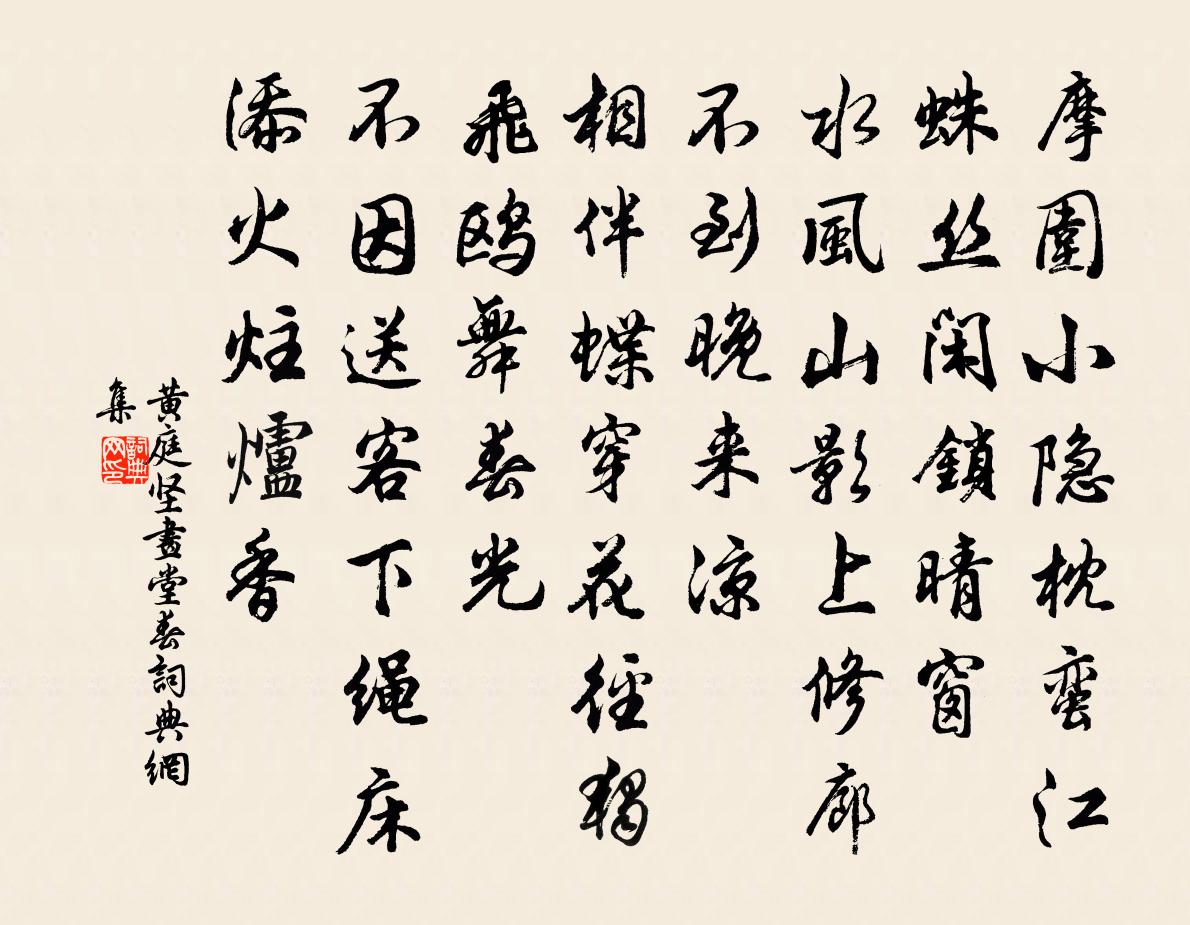 摩圍小隐枕蛮江
蛛丝闲鎖晴窗
水風山影上修廊
不到晚来凉
相伴蝶穿花径獨
飛鸥舞春光
不因送客下绳床
添火炷爐香
黄庭坚畫堂春詞典網
集
詞典网印